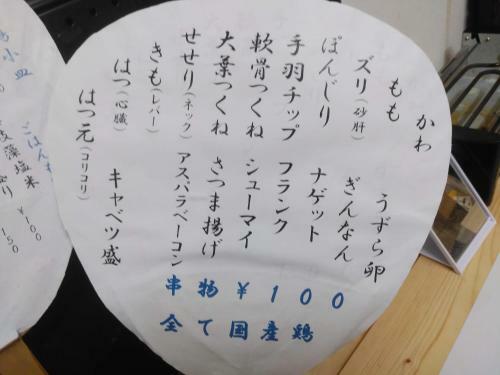 かわ
もも
うずら卵
ズリ(砂肝)
ぎんなん
ぽんじり
ナゲット
手羽チップ
フランク
軟骨つくね
シューマイ
大葉つくね
さつま揚げ
せせり(ネック)
アスパラベーコン
きも(レバー)
はつ(心臓)
キャベツ盛
はつ元(コリコリ)
串物¥100
全て国産鶏
小皿
ごはん
藻塩米
¥100
150